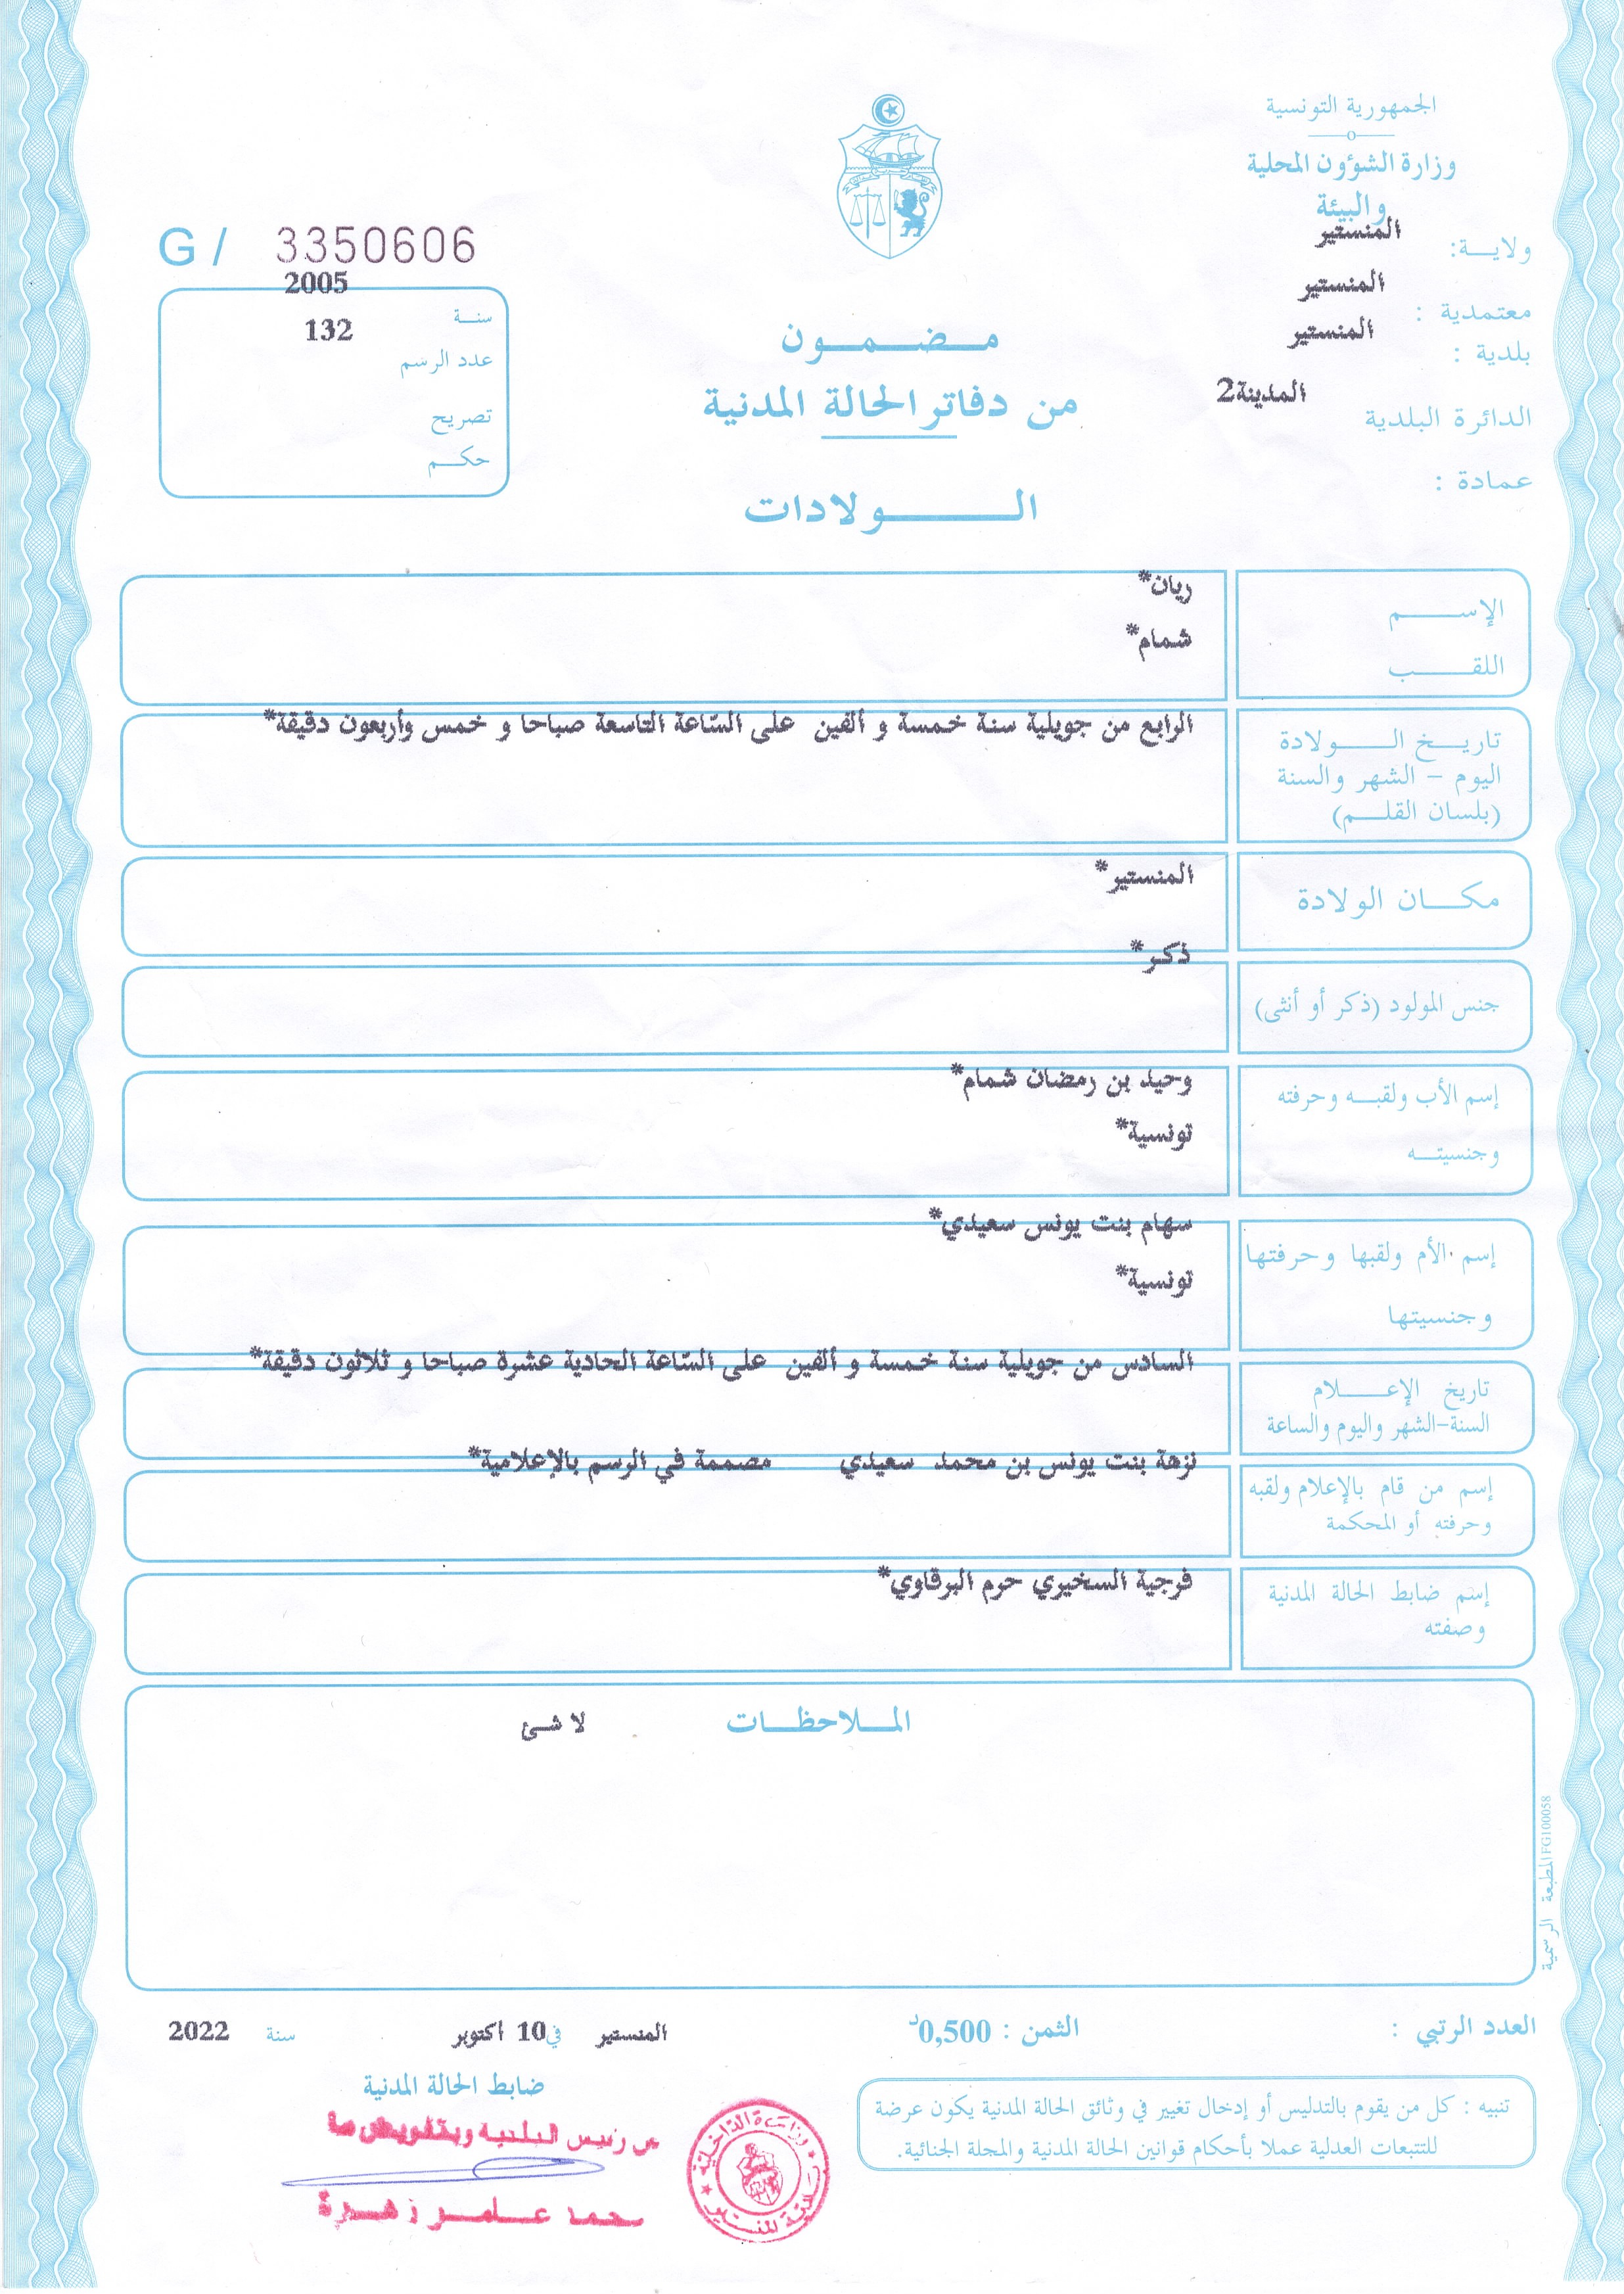 الجمهورية التونسية
وزارة الشؤون المحلية
والبيئة
ولايـــة: المنستير
معتمدية : المنستير
بلدية : المنستير
الدائرة البلدية المدينة2
عمادة :
G / 3350606
سنـــة 2005
عدد الرسم 132
تصريح
حكـــم
مـــضـــمـــون
من دفاتر الحالة المدنية
الـــــولادات
الإســـــم ريان*
اللقـــــب شمام*
تاريـــخ الـــــولادة الرابع من جويلية سنة خمسة و ألفين على السّاعة التاسعة صباحا و خمس وأربعون دقيقة*
اليوم - الشهر والسنة
(بلسان القلـــم)
مكـــان الولادة المنستير*
جنس المولود (ذكر أو أنثى) ذكر*
إسم الأب ولقبـــه وحرفته وحيد بن رمضان شمام*
وجنسيتـــه تونسية*
إسم الأم ولقبها وحرفتها سهام بنت يونس سعيدي*
وجنسيتها تونسية*
تاريخ الإعـــــلام السادس من جويلية سنة خمسة و ألفين على السّاعة الحادية عشرة صباحا و ثلاثون دقيقة*
السنة-الشهر واليوم والساعة
إسم من قام بالإعلام ولقبه نزهة بنت يونس بن محمد سعيدي مصممة في الرسم بالإعلامية*
وحرفته أو المحكمة
إسم ضابط الحالة المدنية فرجية السخيري حرم البرقاوي*
وصفته
المـــلاحظـــات لا شئ
المطبعة الرسمية FG100058
العدد الرتبي :
الثمن : 0,500د
المنستير في 10 أكتوبر سنة 2022
ضابط الحالة المدنية
تنبيه : كل من يقوم بالتدليس أو إدخال تغيير في وثائق الحالة المدنية يكون عرضة
للتتبعات العدلية عملا بأحكام قوانين الحالة المدنية والمجلة الجنائية.
عن رئيس البلدية وبتفويض منه
محمد عامر زهرة
وزارة الداخلية
بلدية المنستير